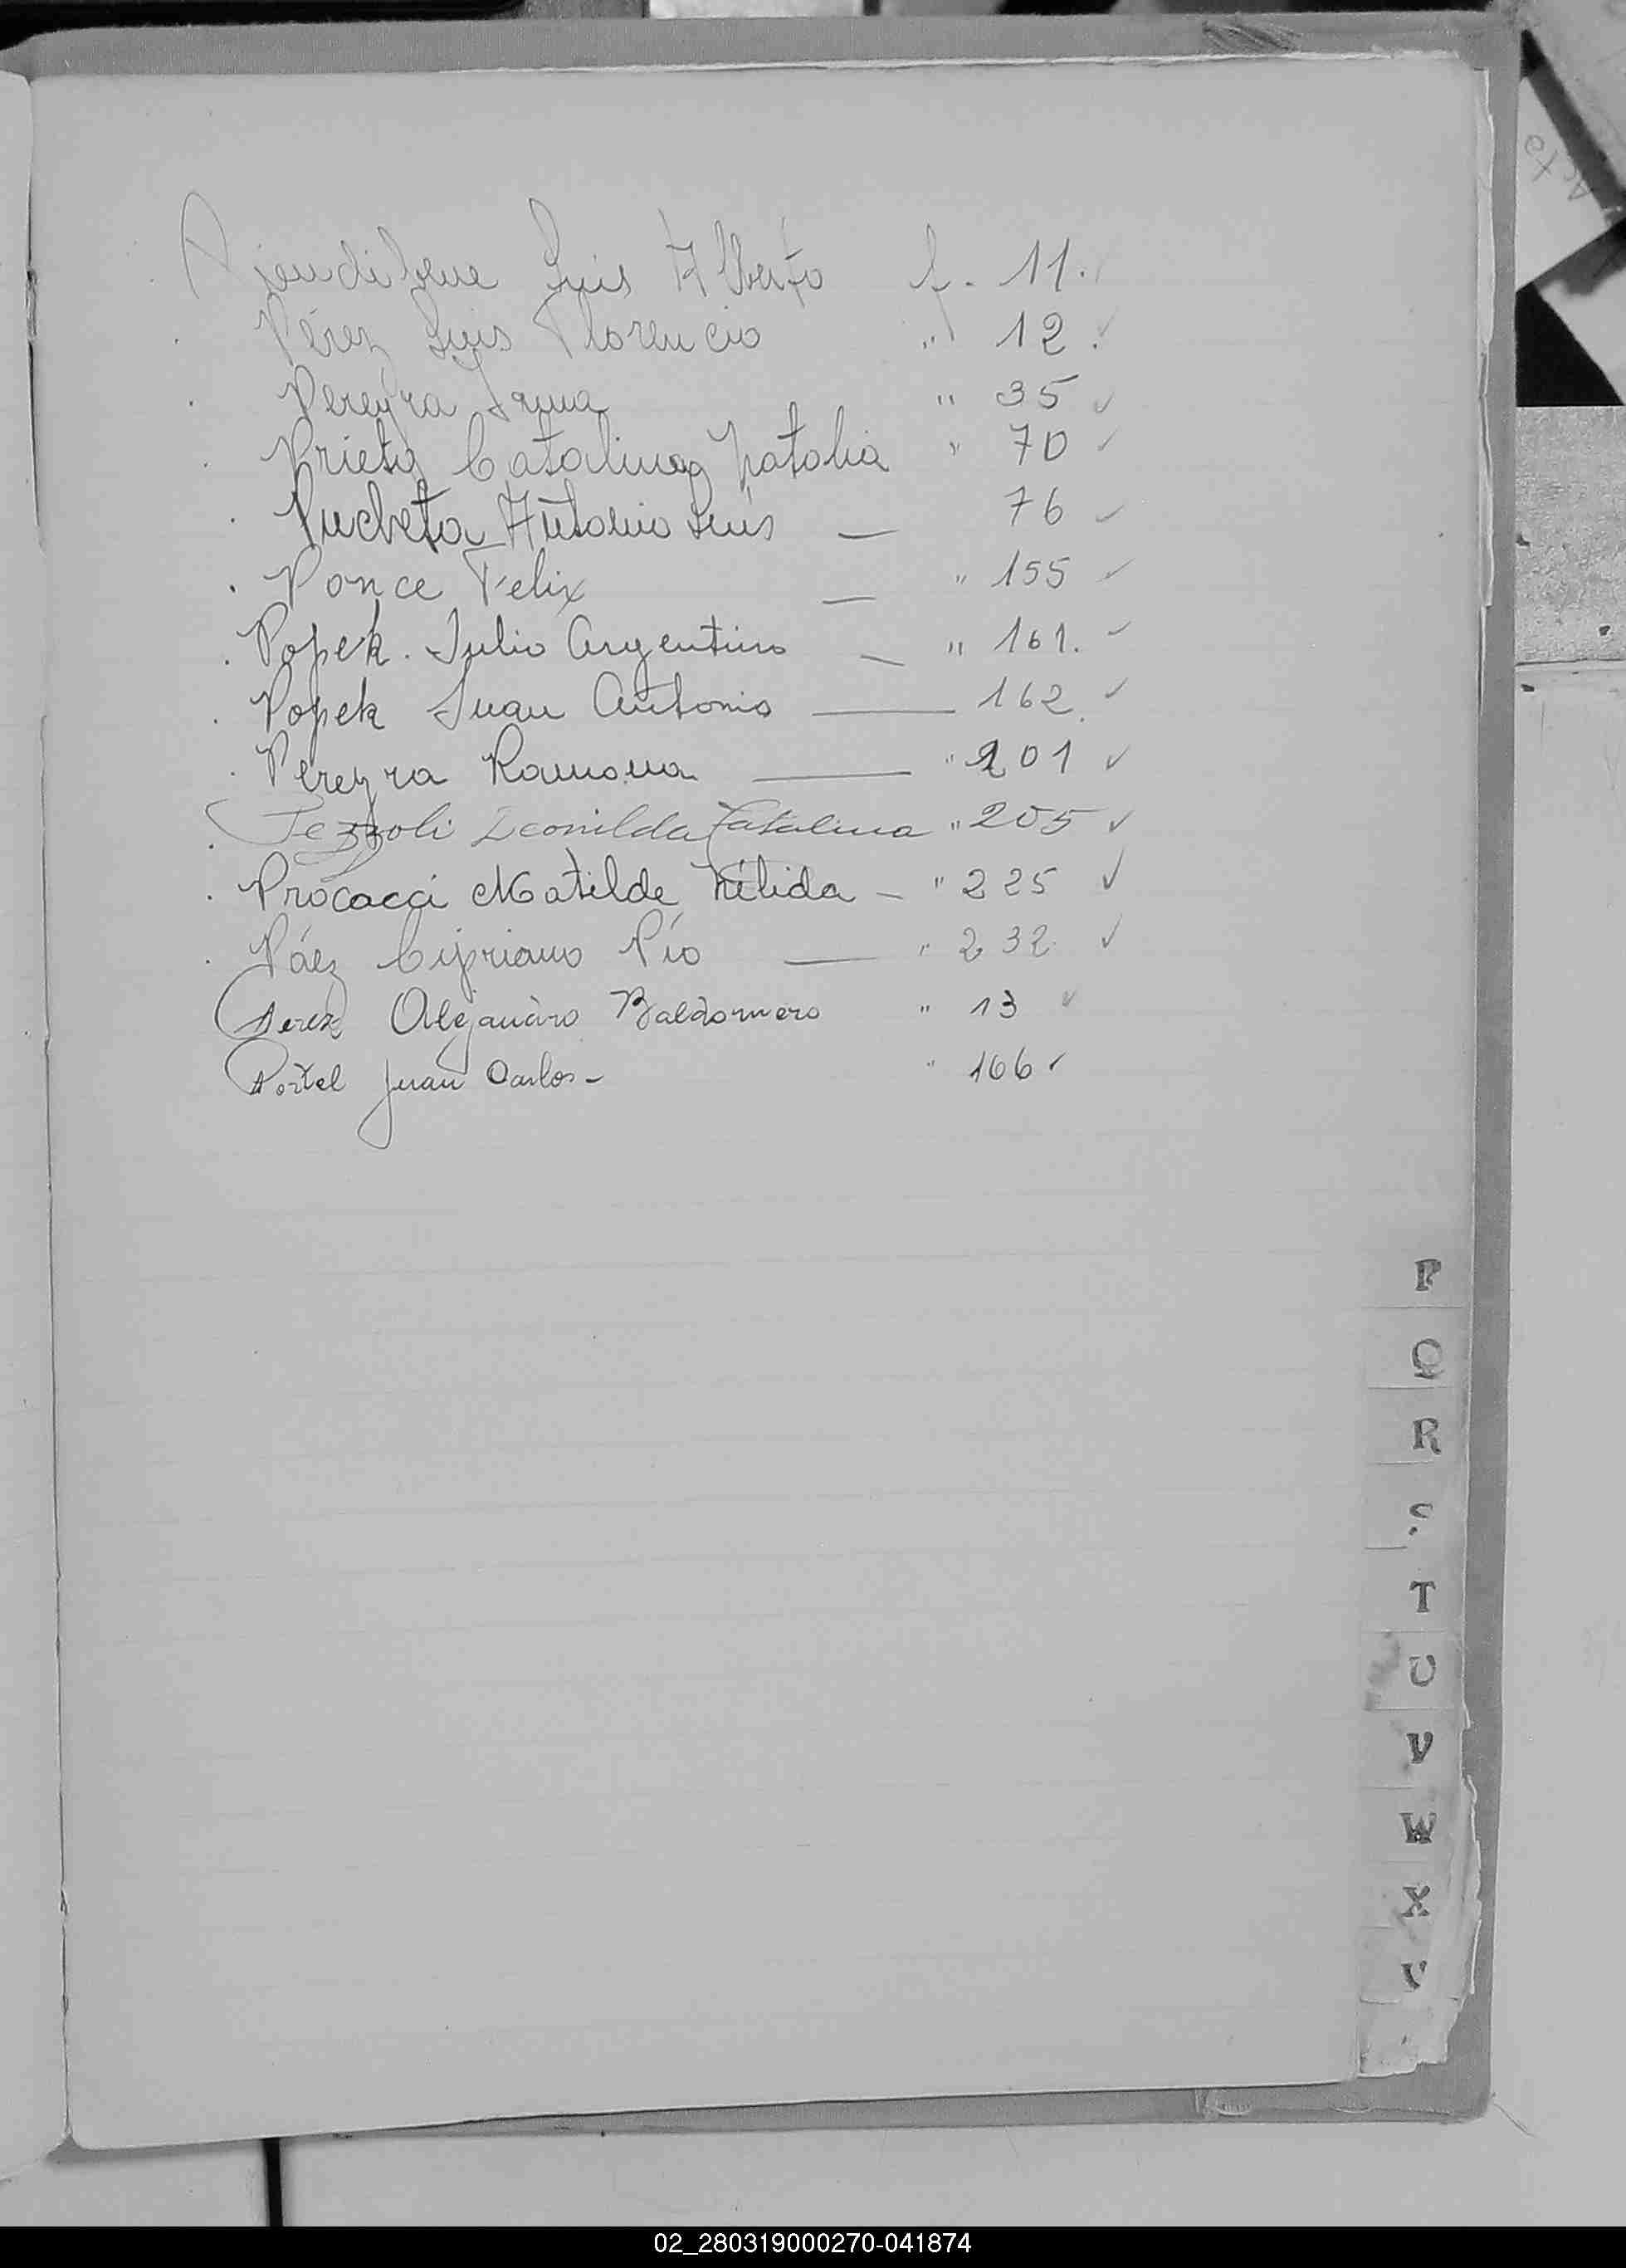 Piendibene Luis Alberto f. 11.
Pérez Luis Florencio " 12.
Pereyra Irma " 35
Prieto Catalina Natalia " 70
Pucheta Antonio Luis — 76
Ponce Felix — " 155
Popek. Julio Argentino — " 161.
Popek Juan Antonio — 162.
Pereyra Ramona — " 201
Pezzoli Leonilda Catalina " 205
Procacci Matilde Nélida — " 225
Páez Cipriano Pío — " 232
Perez Alejandro Baldomero " 13
Portel Juan Carlos - " 166
P
Q
R
S
T
U
V
W
X
02_280319000270-041874